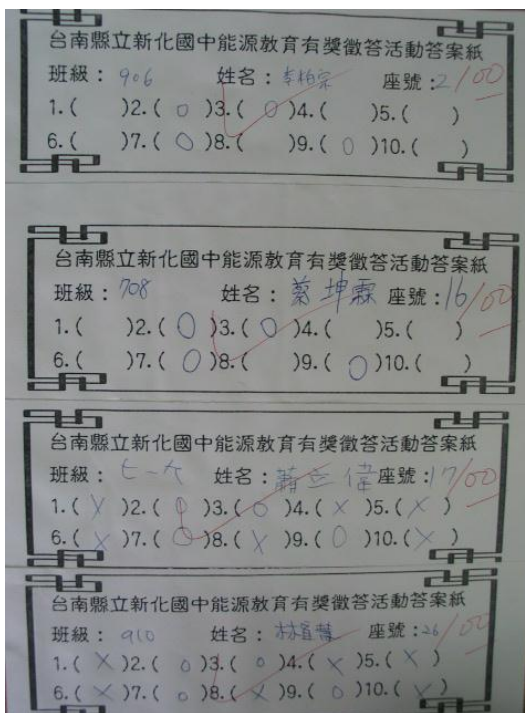 台南縣立新化國中能源教育有獎徵答活動答案紙
班級：906 姓名：李柏宗 座號：2 100
1.( )2.( O )3.( O )4.( )5.( )
6.( )7.( O )8.( )9.( O )10.( )
台南縣立新化國中能源教育有獎徵答活動答案紙
班級：708 姓名：蔡坤霖 座號：16 100
1.( )2.( O )3.( O )4.( )5.( )
6.( )7.( O )8.( )9.( O )10.( )
台南縣立新化國中能源教育有獎徵答活動答案紙
班級：七一六 姓名：蕭立偉 座號：17 100
1.( X )2.( O )3.( O )4.( X )5.( X )
6.( X )7.( O )8.( X )9.( O )10.( X )
台南縣立新化國中能源教育有獎徵答活動答案紙
班級：910 姓名：林 座號：26 100
1.( X )2.( O )3.( O )4.( X )5.( X )
6.( X )7.( O )8.( X )9.( O )10.( X )